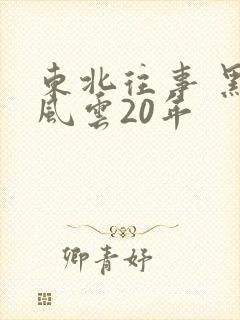 東北往事 黑
風雲20年
卿青妤